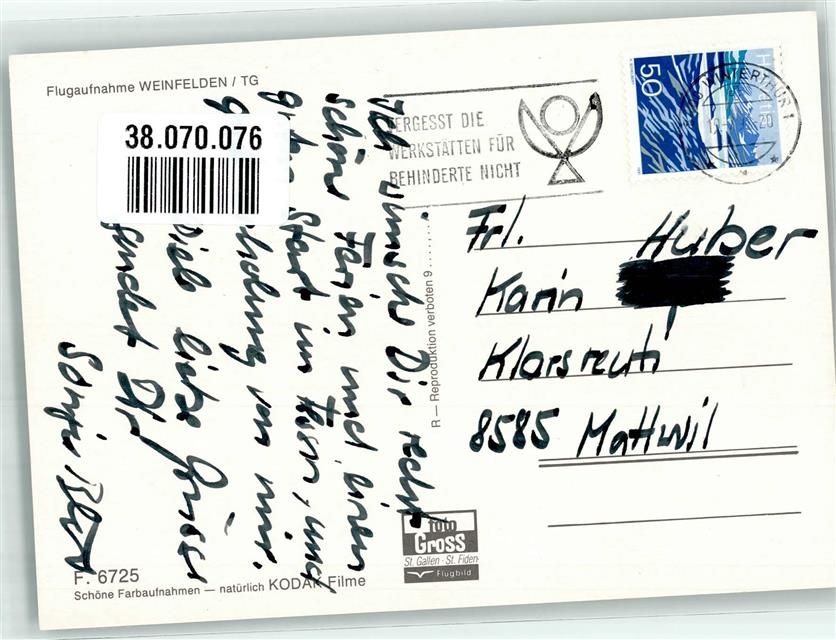 Flugaufnahme WEINFELDEN / TG
38.070.076
Ich wünsche Dir recht
schöne Ferien und einen
guten Start im
von mir.
Viele liebe Grüsse
sendet Dir
Sonja
F. 6725
Schöne Farbaufnahmen — natürlich KODAK Filme
R — Reproduktion verboten 9 . . . . . . .
VERGESST DIE
WERKSTÄTTEN FÜR
BEHINDERTE NICHT
50
WINTERTHUR 1
20
Frl. Huber
Karin
Klarsreuti
8585 Mattwil
foto
Gross
St. Gallen - St. Fiden
Flugbild